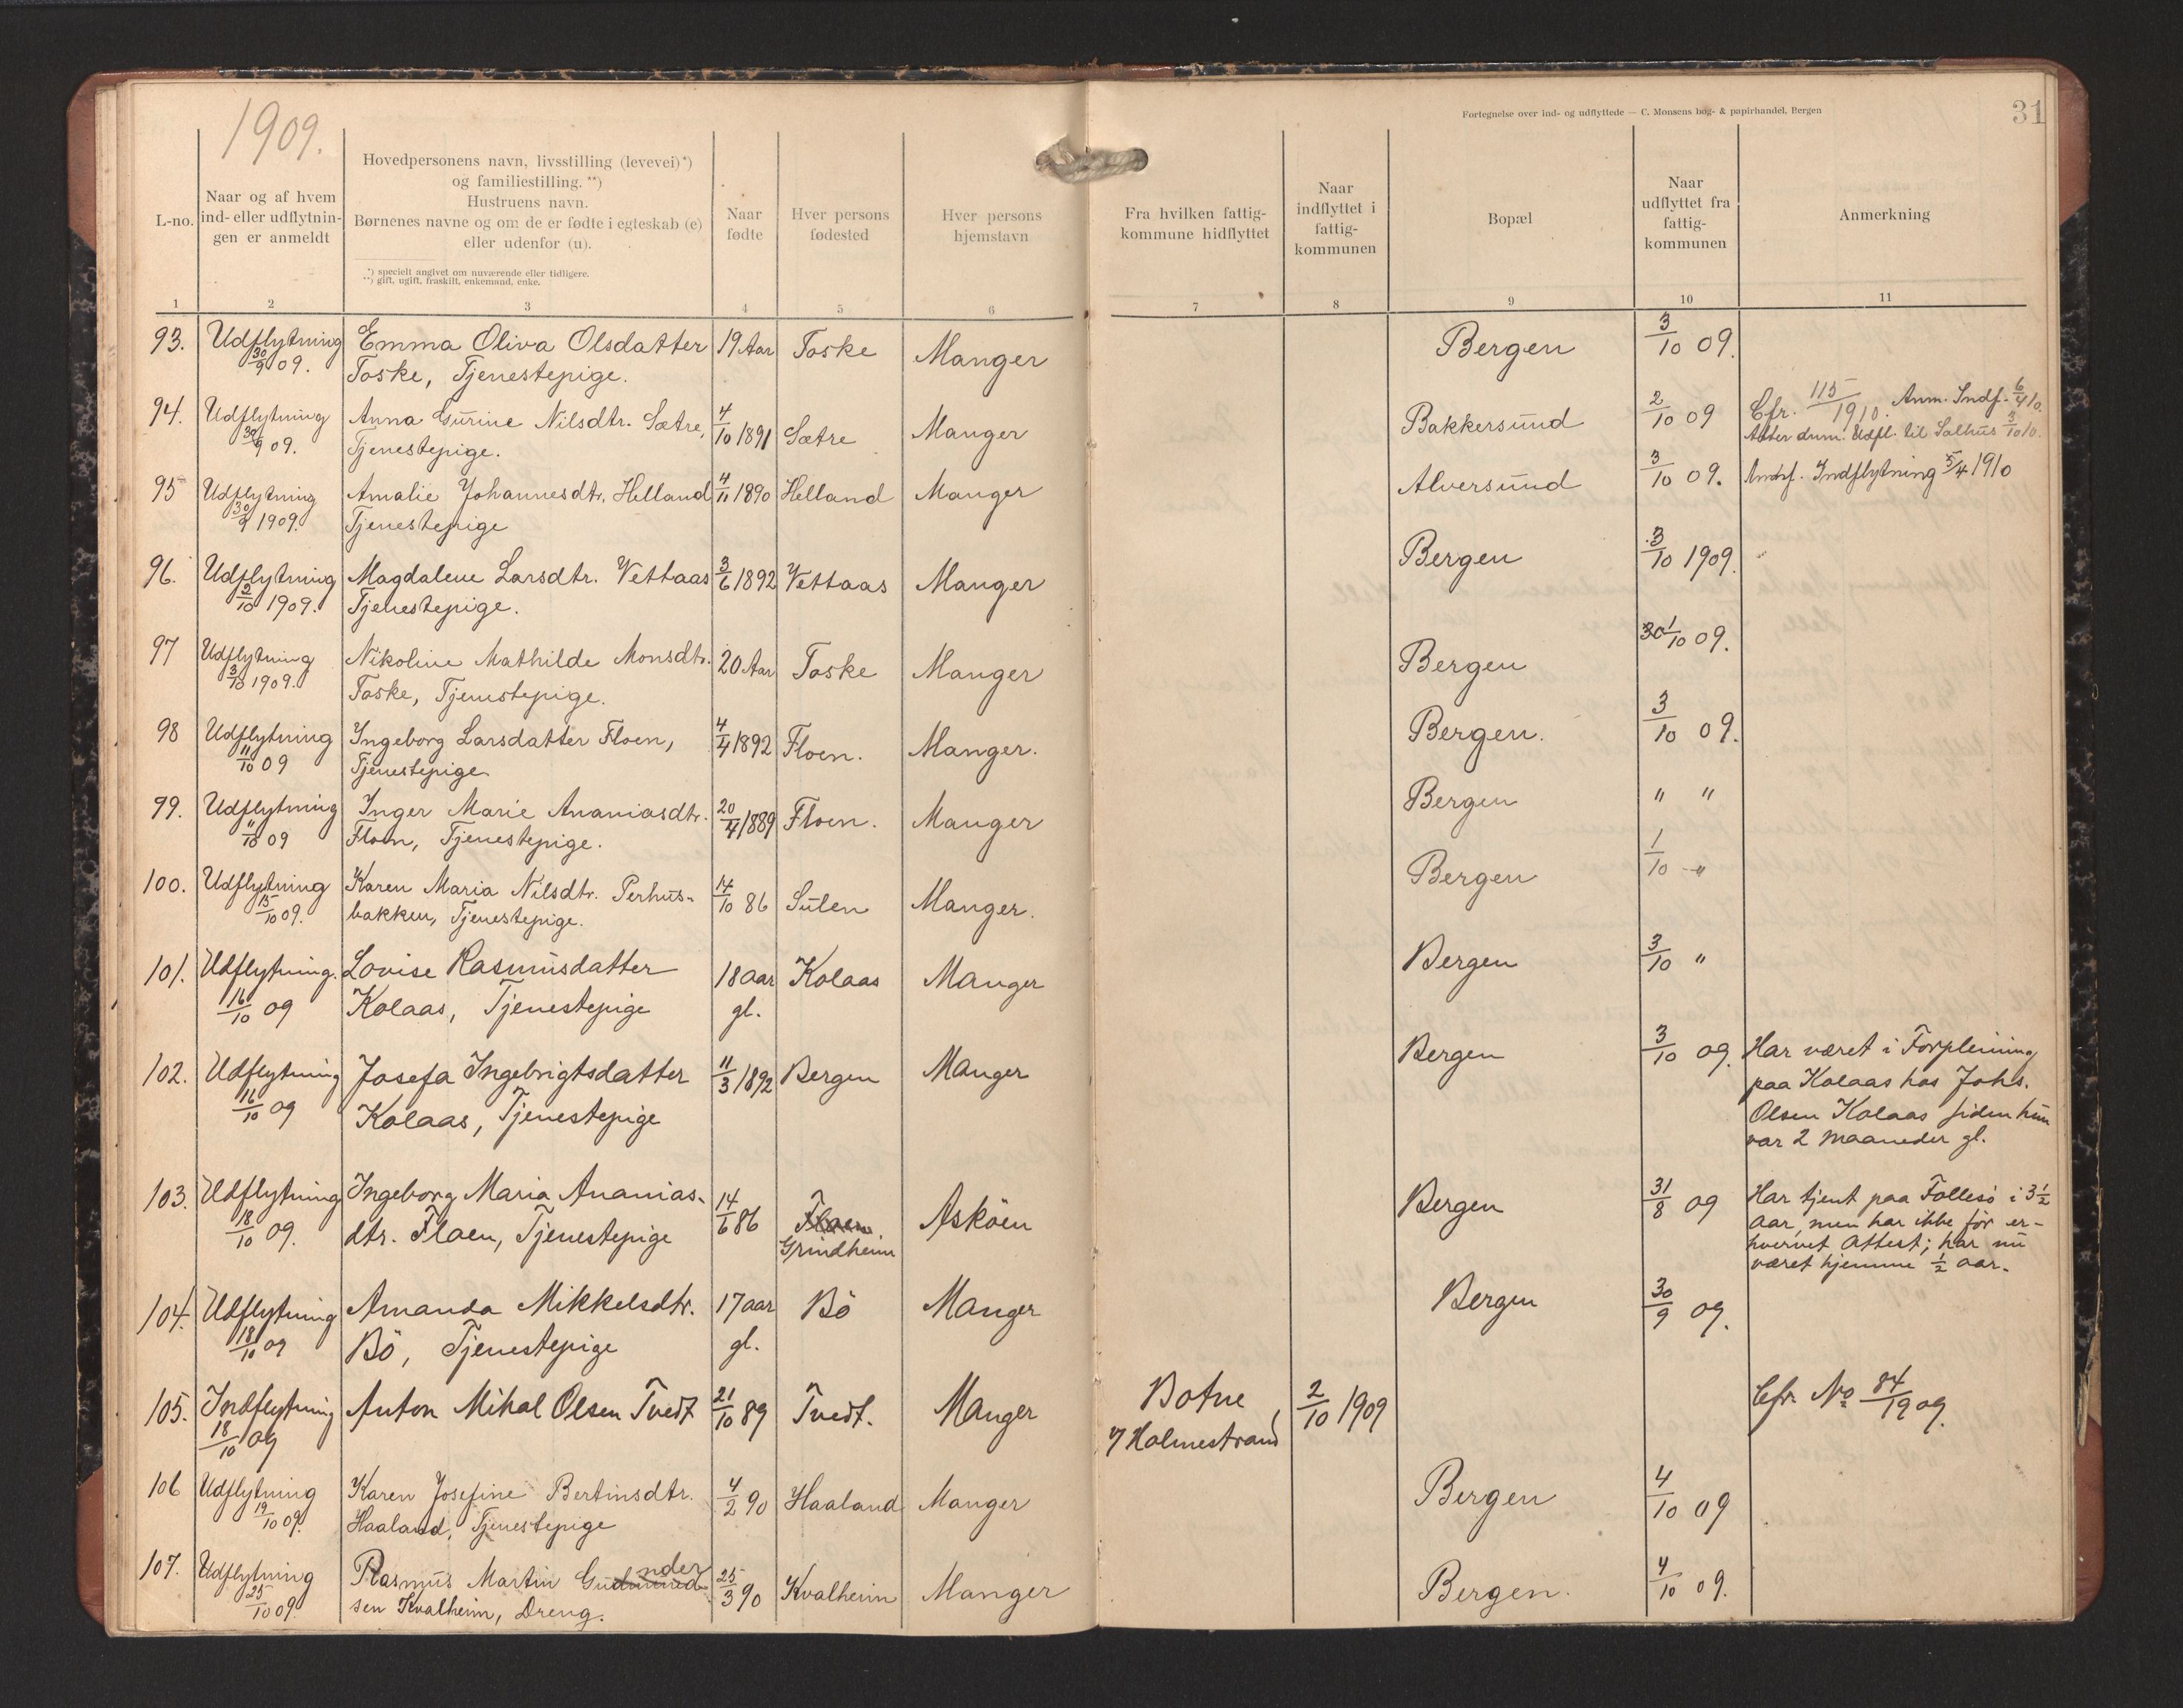 1909.
Fortegnelse over ind- og udflyttede — C. Monsens bog- & papirhandel, Bergen
31
L-no.
Naar og af hvem
ind- eller udflytnin-
gen er anmeldt
Hovedpersonens navn, livsstilling (levevei)*)
og familiestilling. **)
Hustruens navn.
Børnenes navne og om de er fødte i egteskab (e)
eller udenfor (u).
*) specielt angivet om nuværende eller tidligere.
**) gift, ugift, fraskilt, enkemand, enke.
Naar
fødte
Hver persons
fødested
Hver persons
hjemstavn
Fra hvilken fattig-
kommune hidflyttet
Naar
indflyttet i
fattig-
kommunen
Bopæl
Naar
udflyttet fra
fattig-
kommunen
Anmerkning
1 2 3 4 5 6 7 8 9 10 11
93. Udflytning Emma Oliva Olsdatter 19 Aar Toske Manger Bergen 3/10 09.
30/9 09. Toske, Tjenestepige.
94. Udflytning Anna Gurine Nilsdtr. Sætre, 4/10 1891 Sætre Manger Bakkersund 2/10 09 Cfr. 115/1910. Anm. Indf. 6/4 10.
30/9 09. Tjenestepige. Udfl. til Salhus 3/10 10.
95 Udflytning Amalie Johannesdtr. Helland 4/11 1890 Helland Manger Alversund 3/10 09. Indflytning 5/4 1910
30/9 1909. Tjenestepige
96. Udflytning Magdalene Larsdtr. Vettaas 3/6 1892 Vettaas Manger Bergen 3/10 1909.
3/10 1909. Tjenestepige.
97 Udflytning Nikoline Mathilde Monsdtr. 20 Aar Toske Manger Bergen 1/10 09.
3/10 1909. Toske, Tjenestepige.
98 Udflytning Ingeborg Larsdatter Floen, 4/4 1892 Floen. Manger. Bergen. 3/10 09.
11/10 09 Tjenestepige
99. Udflytning Inger Marie Ananiasdtr. 20/4 1889 Floen. Manger Bergen " "
11/10 09 Floen, Tjenestepige.
100. Udflytning Karen Maria Nilsdtr. Perhus- 14/10 86 Sulen Manger. Bergen 1/10 - "
15/10 09. bakken, Tjenestepige.
101. Udflytning. Lovise Rasmusdatter 18 aar Kolaas Manger Bergen 3/10 "
16/10 09 Kolaas, Tjenestepige gl.
102. Udflytning Josefa Ingebrigtsdatter 11/3 1892 Bergen Manger Bergen 3/10 09. Har været i Forpleining
16/10 09 Kolaas, Tjenestepige paa Kolaas hos Johs.
Olsen Kolaas siden hun
var 2 maaneder gl.
103. Udflytning Ingeborg Maria Ananias- 14/6 86 Floen Askøen Bergen 31/8 09 Har tjent paa Follesø i 3 1/2
18/10 09. dtr. Floen, Tjenestepige Grindheim aar, men har ikke før er-
hvervet Attest; har nu
været hjemme 1/2 aar.
104. Udflytning Amanda Mikkelsdtr. 17 aar Bö Manger Bergen 30/9 09.
18/10 09 Bö, Tjenestepige gl.
105. Indflytning Anton Mikal Olsen Tvedt 21/10 89 Tvedt. Manger Botne 2/10 1909 Cfr. No 84/1909.
18/10 09 Holmestrand
106 Udflytning Karen Josefine Bertinsdtr. 4/2 90 Haaland Manger Bergen 4/10 09
19/10 09. Haaland, Tjenestepige
107. Udflytning Rasmus Martin Gudmund nder 25/3 90 Kvalheim Manger Bergen. 4/10 09.
25/10 09. sen Kvalheim, Dreng.